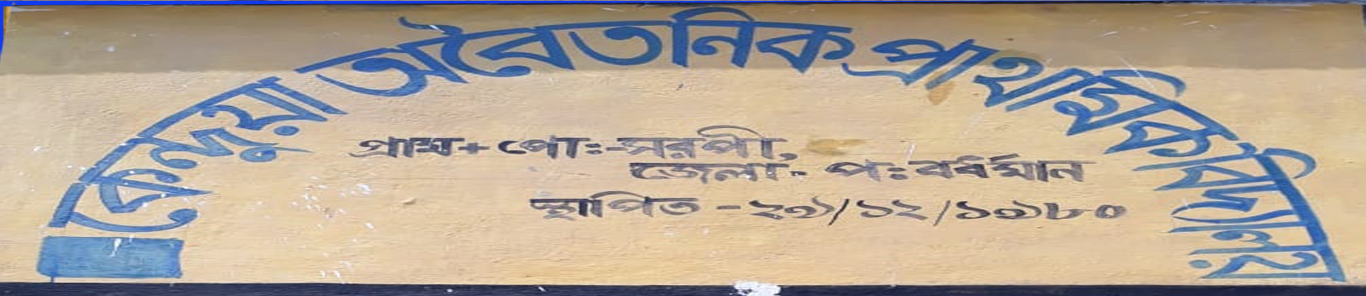 কেন্দুয়া অবৈতনিক প্রাথমিক বিদ্যালয়
গ্রাম+ পোঃ-সরপী,
জেলা- পঃ বর্ধমান
স্থাপিত -২৩/১২/১৯৮০